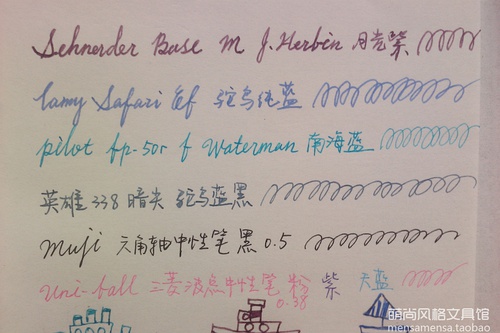 Schnerder Base M J.Herbin 月光紫
lamy Safari ef 鸵鸟纯蓝
pilot fp-50r f Waterman 南海蓝
英雄 338 暗尖 鸵鸟蓝黑
muji 六角轴中性笔 黑 0.5
uni-ball 三菱波点中性笔 粉 紫 天蓝
0.38
萌尚风格文具馆
mensamensa.taobao.com